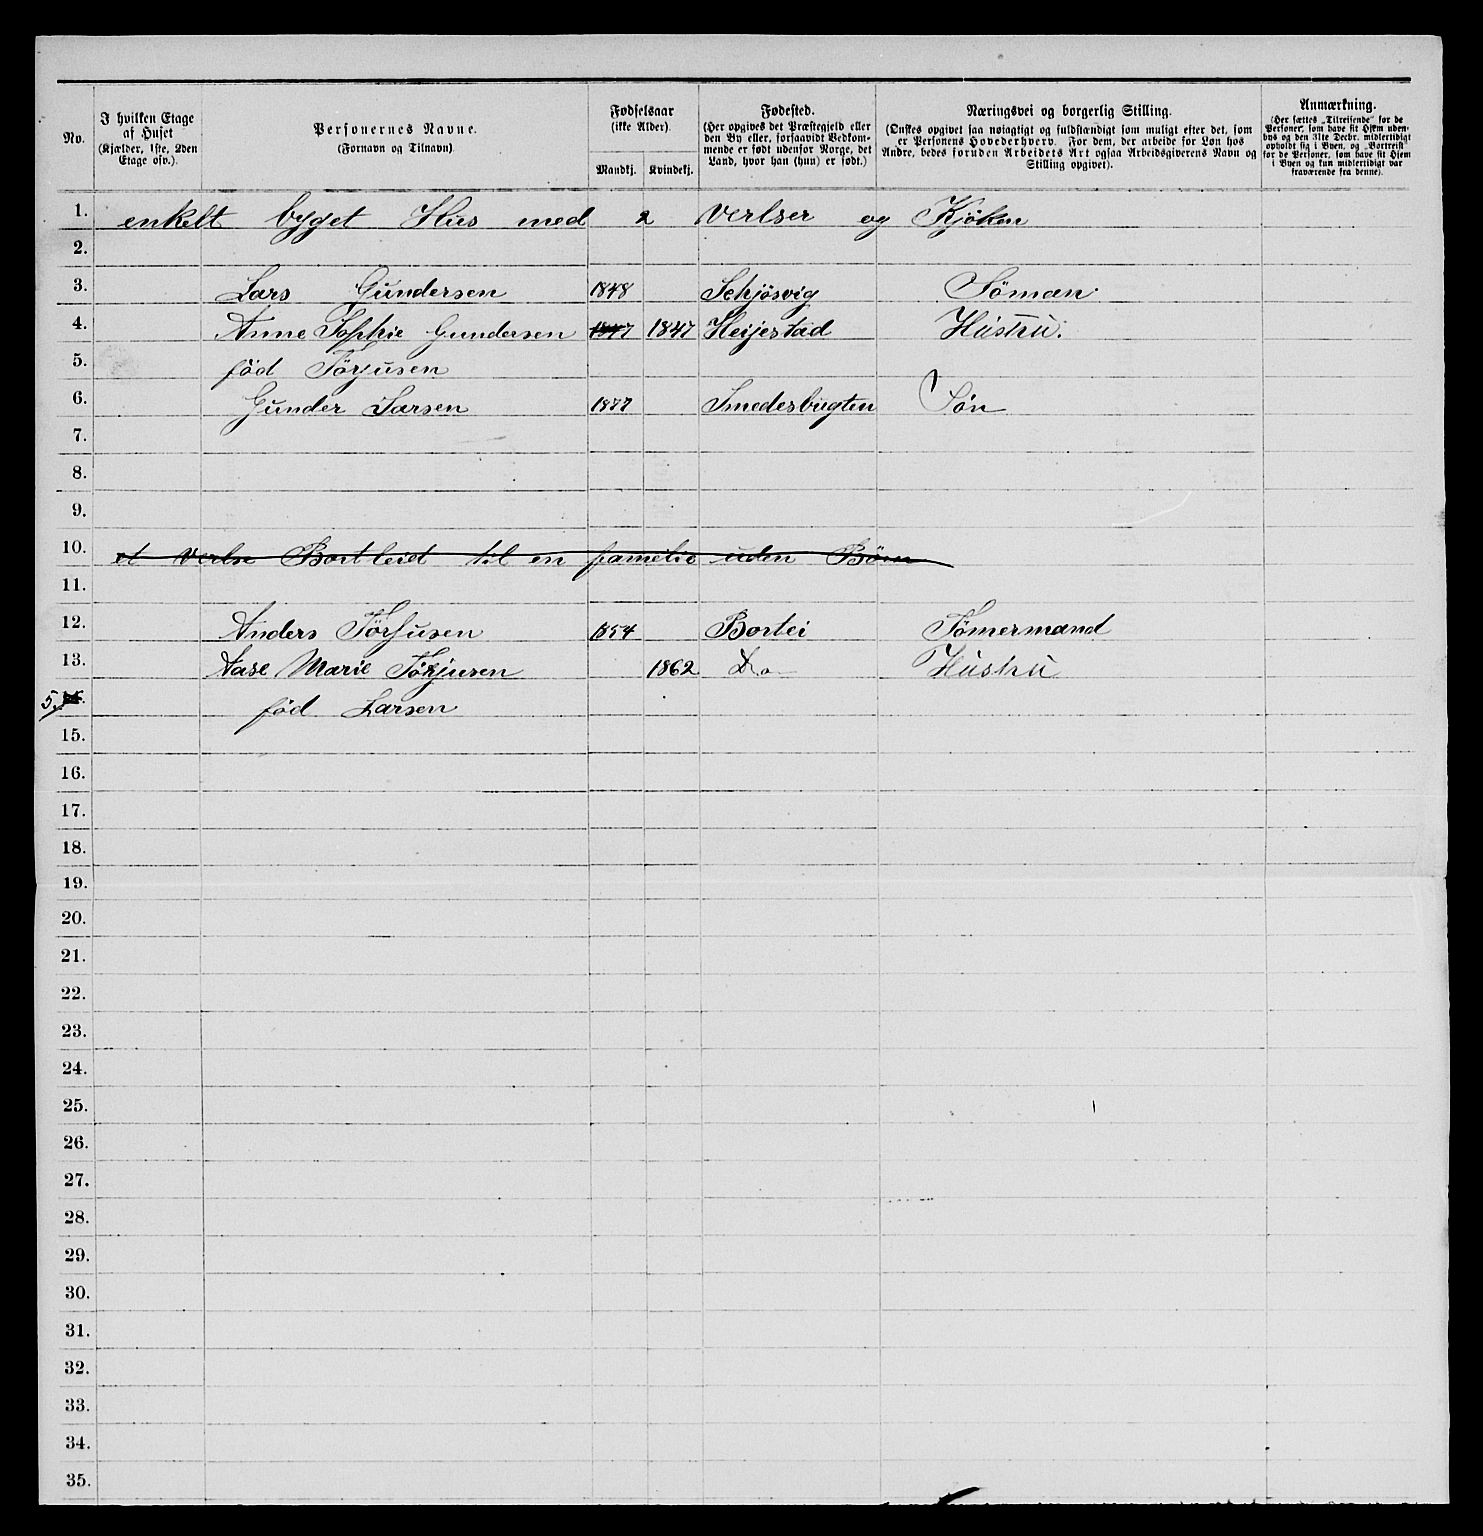 No.
I hvilken Etage
af Huset
(Kjælder, 1ste, 2den
Etage osv.).
Personernes Navne.
(Fornavn og Tilnavn).
Fødselsaar
(ikke Alder).
Mandkj. Kvindekj.
Fødested.
(Her opgives det Præstegjeld eller
den By eller, forsaavidt Vedkom-
mende er født udenfor Norge, det
Land, hvor han (hun) er født.)
Næringsvei og borgerlig Stilling.
(Ønskes opgivet saa nøiagtigt og fuldstændigt som muligt efter det, som
er Personens Hovederhverv. For dem, der arbeide for Løn hos
Andre, bedes foruden Arbeidets Art ogsaa Arbeidsgiverens Navn og
Stilling opgivet).
Anmærkning.
(Her sættes „Tilreisende" for de
Personer, som have sit Hjem uden-
bys og den 31te Decbr. midlertidigt
opholdt sig i Byen, og „Bortreist"
for de Personer, som have sit Hjem
i Byen og kun midlertidigt var
fraværende fra denne).
1. enkelt bygget Hus med 2 Verlser og Kjøken
2.
3. Lars Gundersen 1848 Schjösvig Søman.
4. Anne Sophie Gundersen 1847 1847 Heijestad Hustru.
5. föd Törjusen
6. Gunder Larsen 1877 Smedesbugten Søn
7.
8.
9.
10. et Verlse Bortleiet til en famelie uden Börn
11.
12. Anders Törjusen 1854 Bortei Tömermand
13. Aase Marie Törjusen 1862 Do Hustru
5. föd Larsen
15.
16.
17.
18.
19.
20.
21.
22.
23.
24.
25.
26.
27.
28.
29.
30.
31.
32.
33.
34.
35.